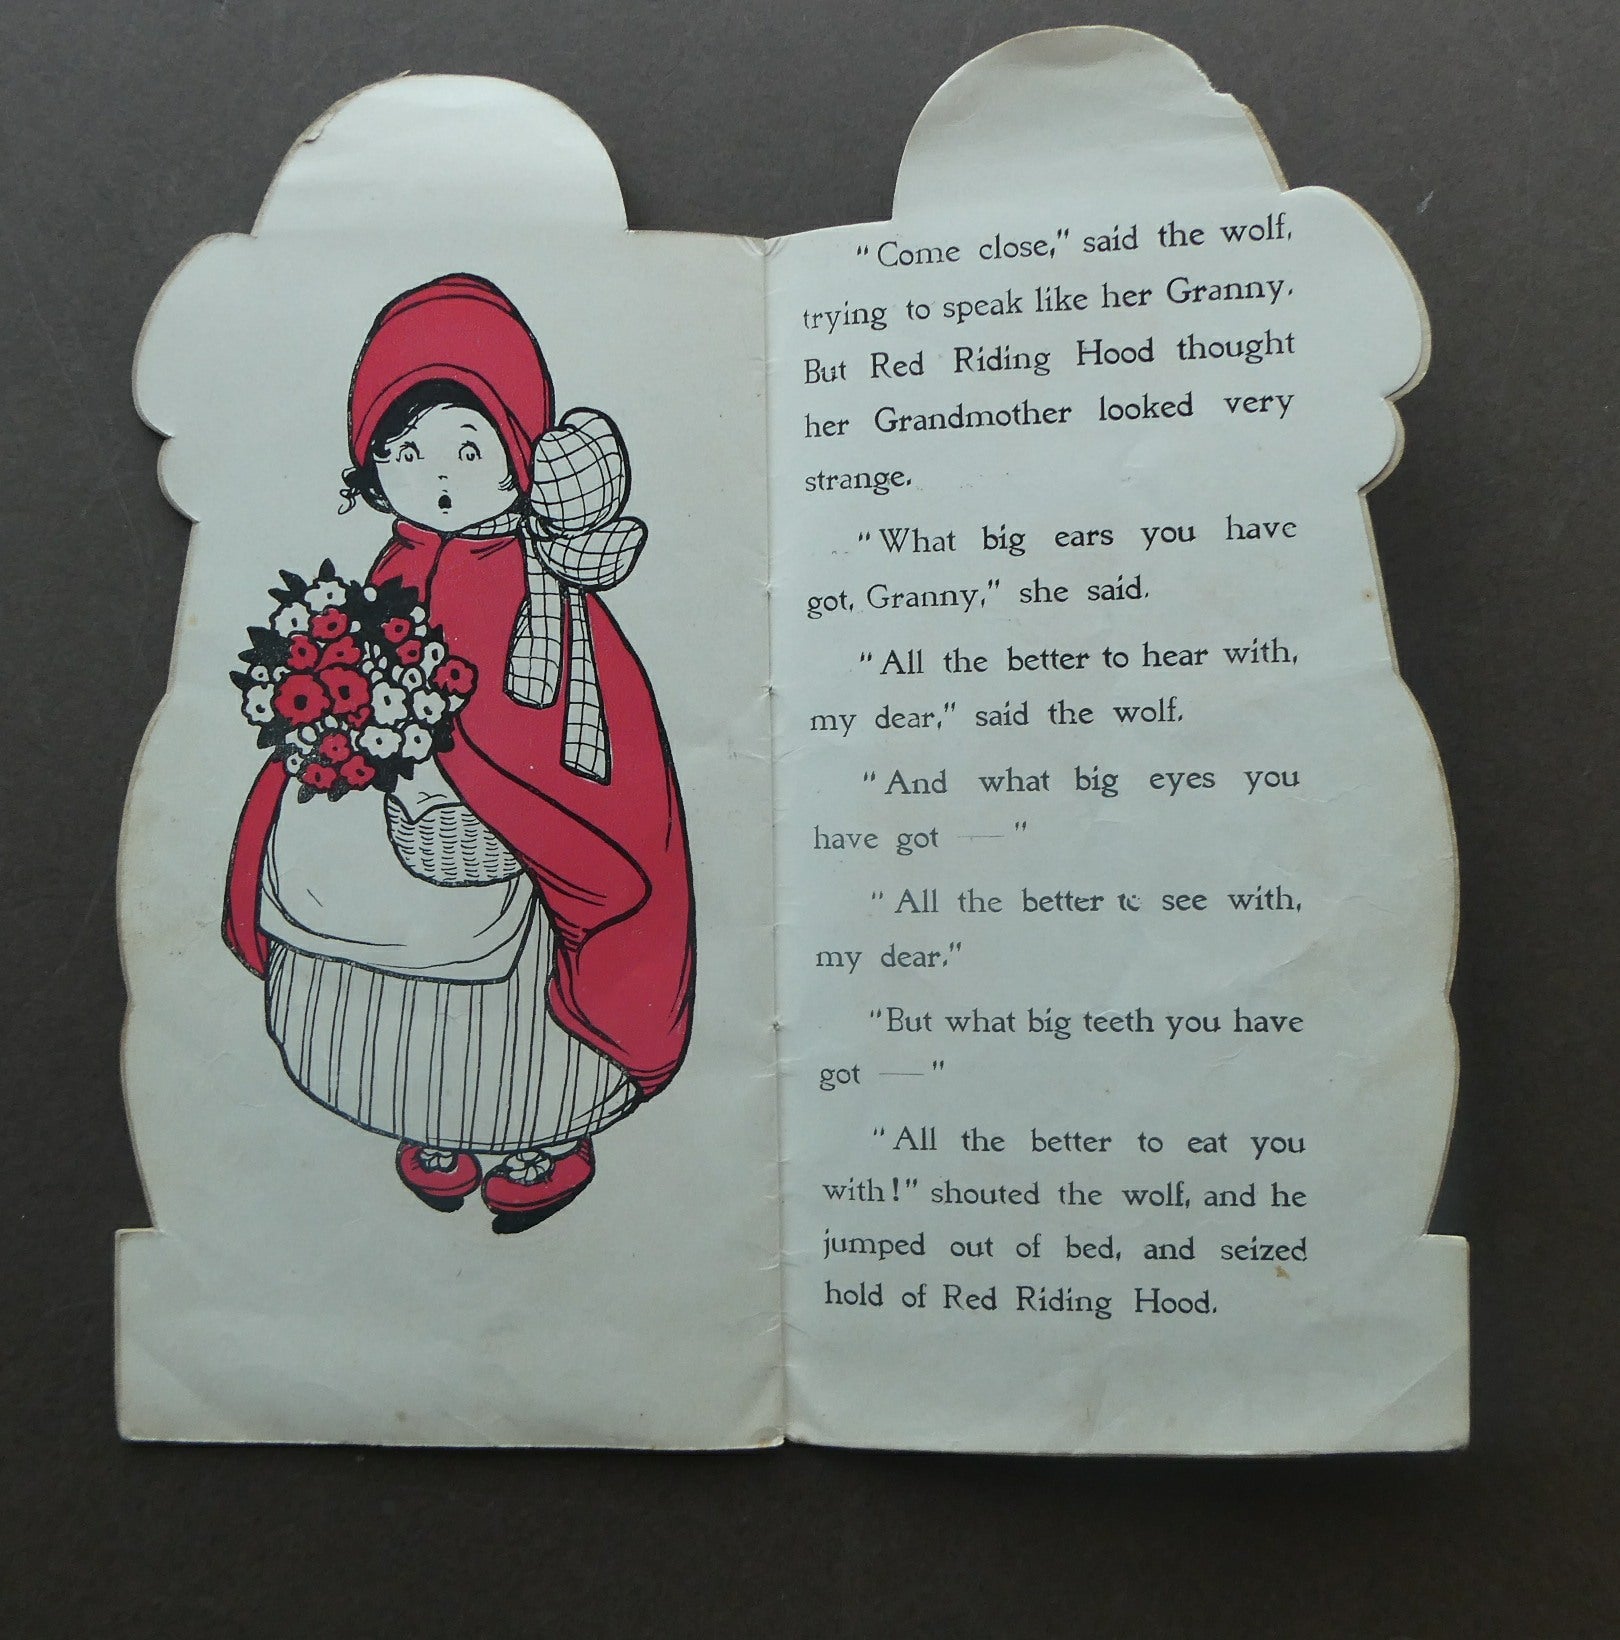 "Come close," said the wolf,
trying to speak like her Granny.
But Red Riding Hood thought
her Grandmother looked very
strange.
"What big ears you have
got, Granny," she said.
"All the better to hear with,
my dear," said the wolf.
"And what big eyes you
have got — "
"All the better to see with,
my dear."
"But what big teeth you have
got — "
"All the better to eat you
with!" shouted the wolf, and he
jumped out of bed, and seized
hold of Red Riding Hood.